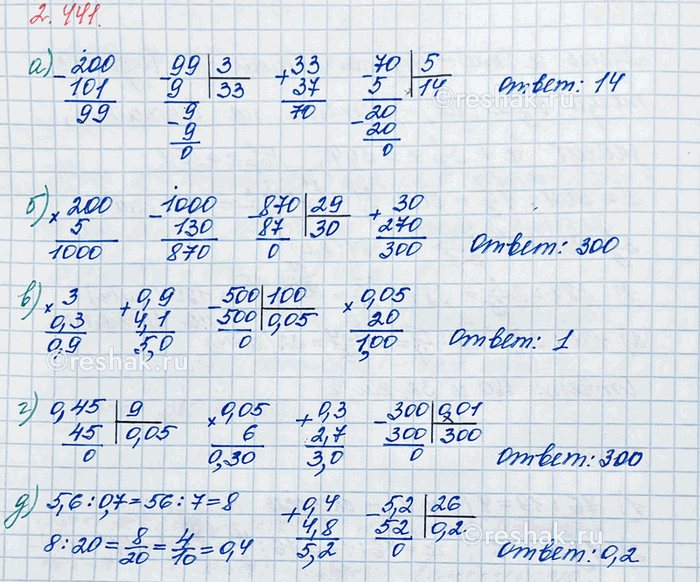 2.441.
а) - 200 - 99 | 3 + 33 - 70 | 5
101 9 | 33 37 5 | 14 ответ: 14
99 - 9 70 - 20
9 20
0 0
©reshak.ru
б) × 200 - 1000 - 870 | 29 + 30
5 130 87 | 30 270
1000 870 0 300 ответ: 300
в) × 3 + 0,9 - 500 | 100 × 0,05
0,3 4,1 500 | 0,05 20
0,9 5,0 0 1,00 ответ: 1
©reshak.ru
г) 0,45 | 9 × 0,05 + 0,3 - 300 | 0,01
45 | 0,05 6 2,7 300 | 300
0 0,30 3,0 0 ответ: 300
д) 5,6 : 0,7 = 56 : 7 = 8 + 0,4 - 5,2 | 26
8 : 20 = 8/20 = 4/10 = 0,4 4,8 52 | 0,2
5,2 0 ответ: 0,2
©reshak.ru